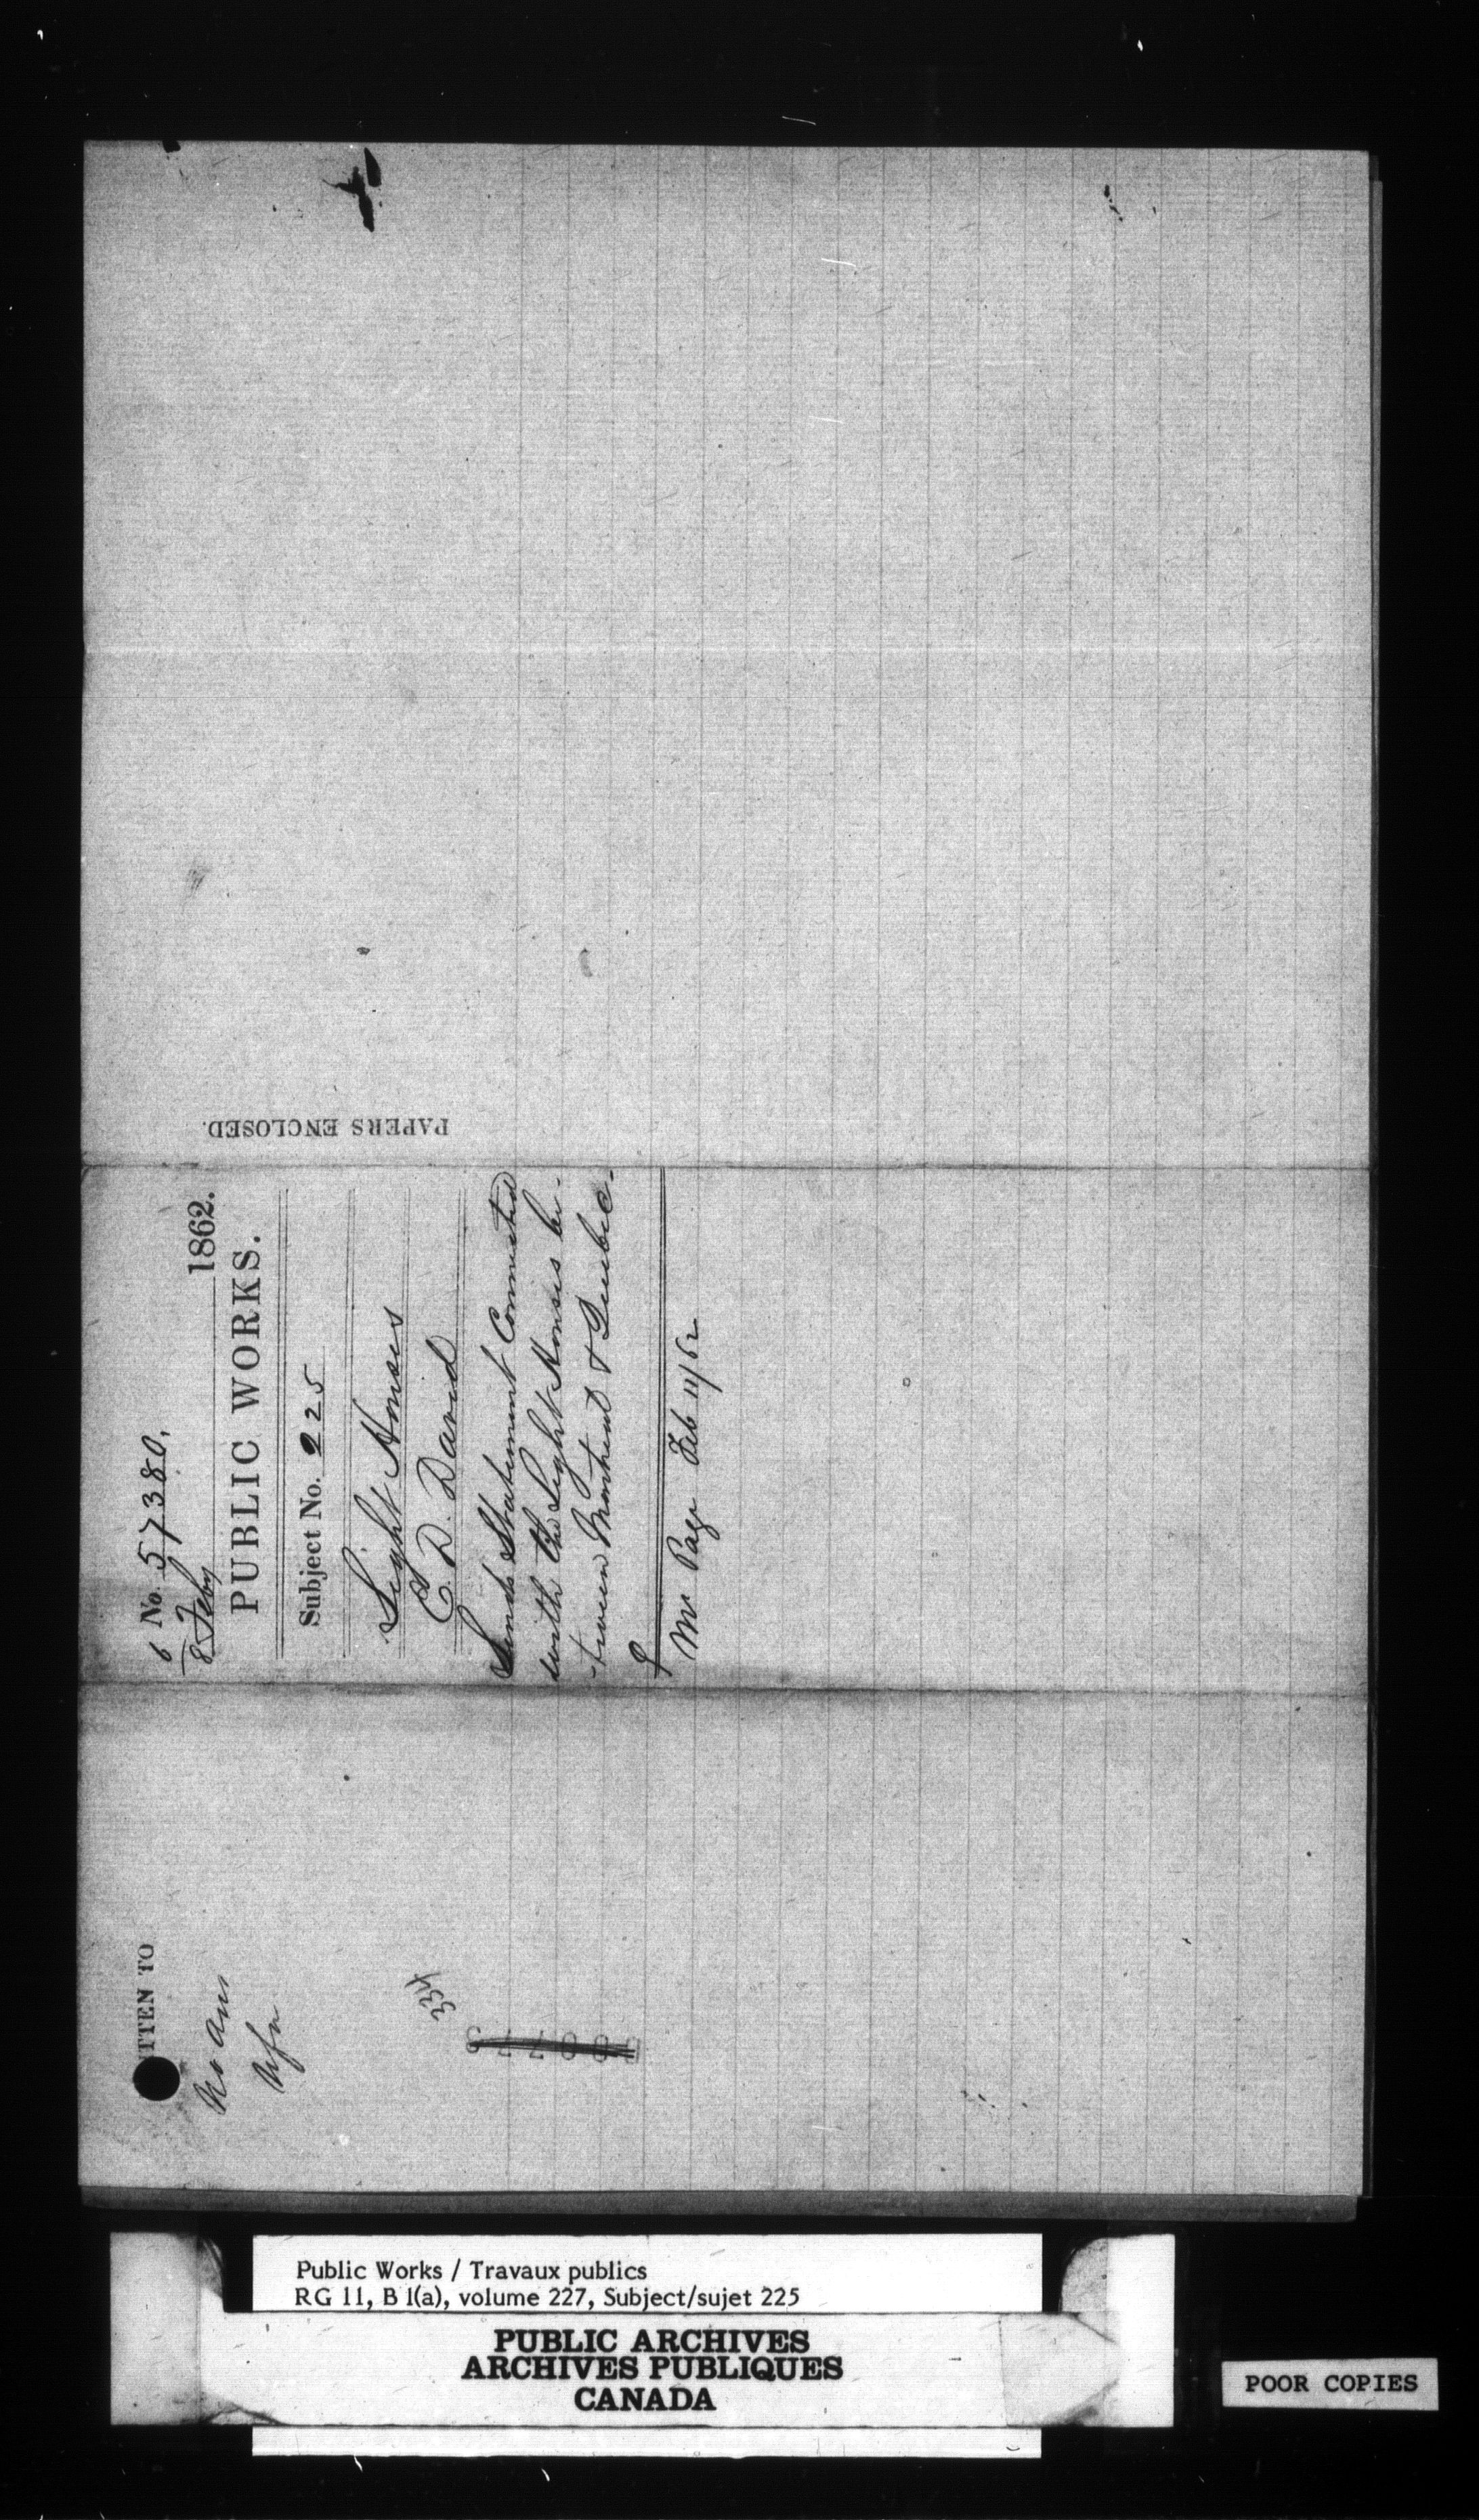 PAPERS ENCLOSED.
6 No. 57380.
8 Feby 1862.
PUBLIC WORKS.
Subject No. 225
Light Houses
C. D. David
Sends Statement Connected
with the Light Houses be-
-tween Montreal & Quebec.
Mr Page Feb 11/62
TTEN TO
No Ans
334
Public Works / Travaux publics
RG 11, B 1(a), volume 227, Subject/sujet 225
PUBLIC ARCHIVES
ARCHIVES PUBLIQUES
CANADA
POOR COPIES